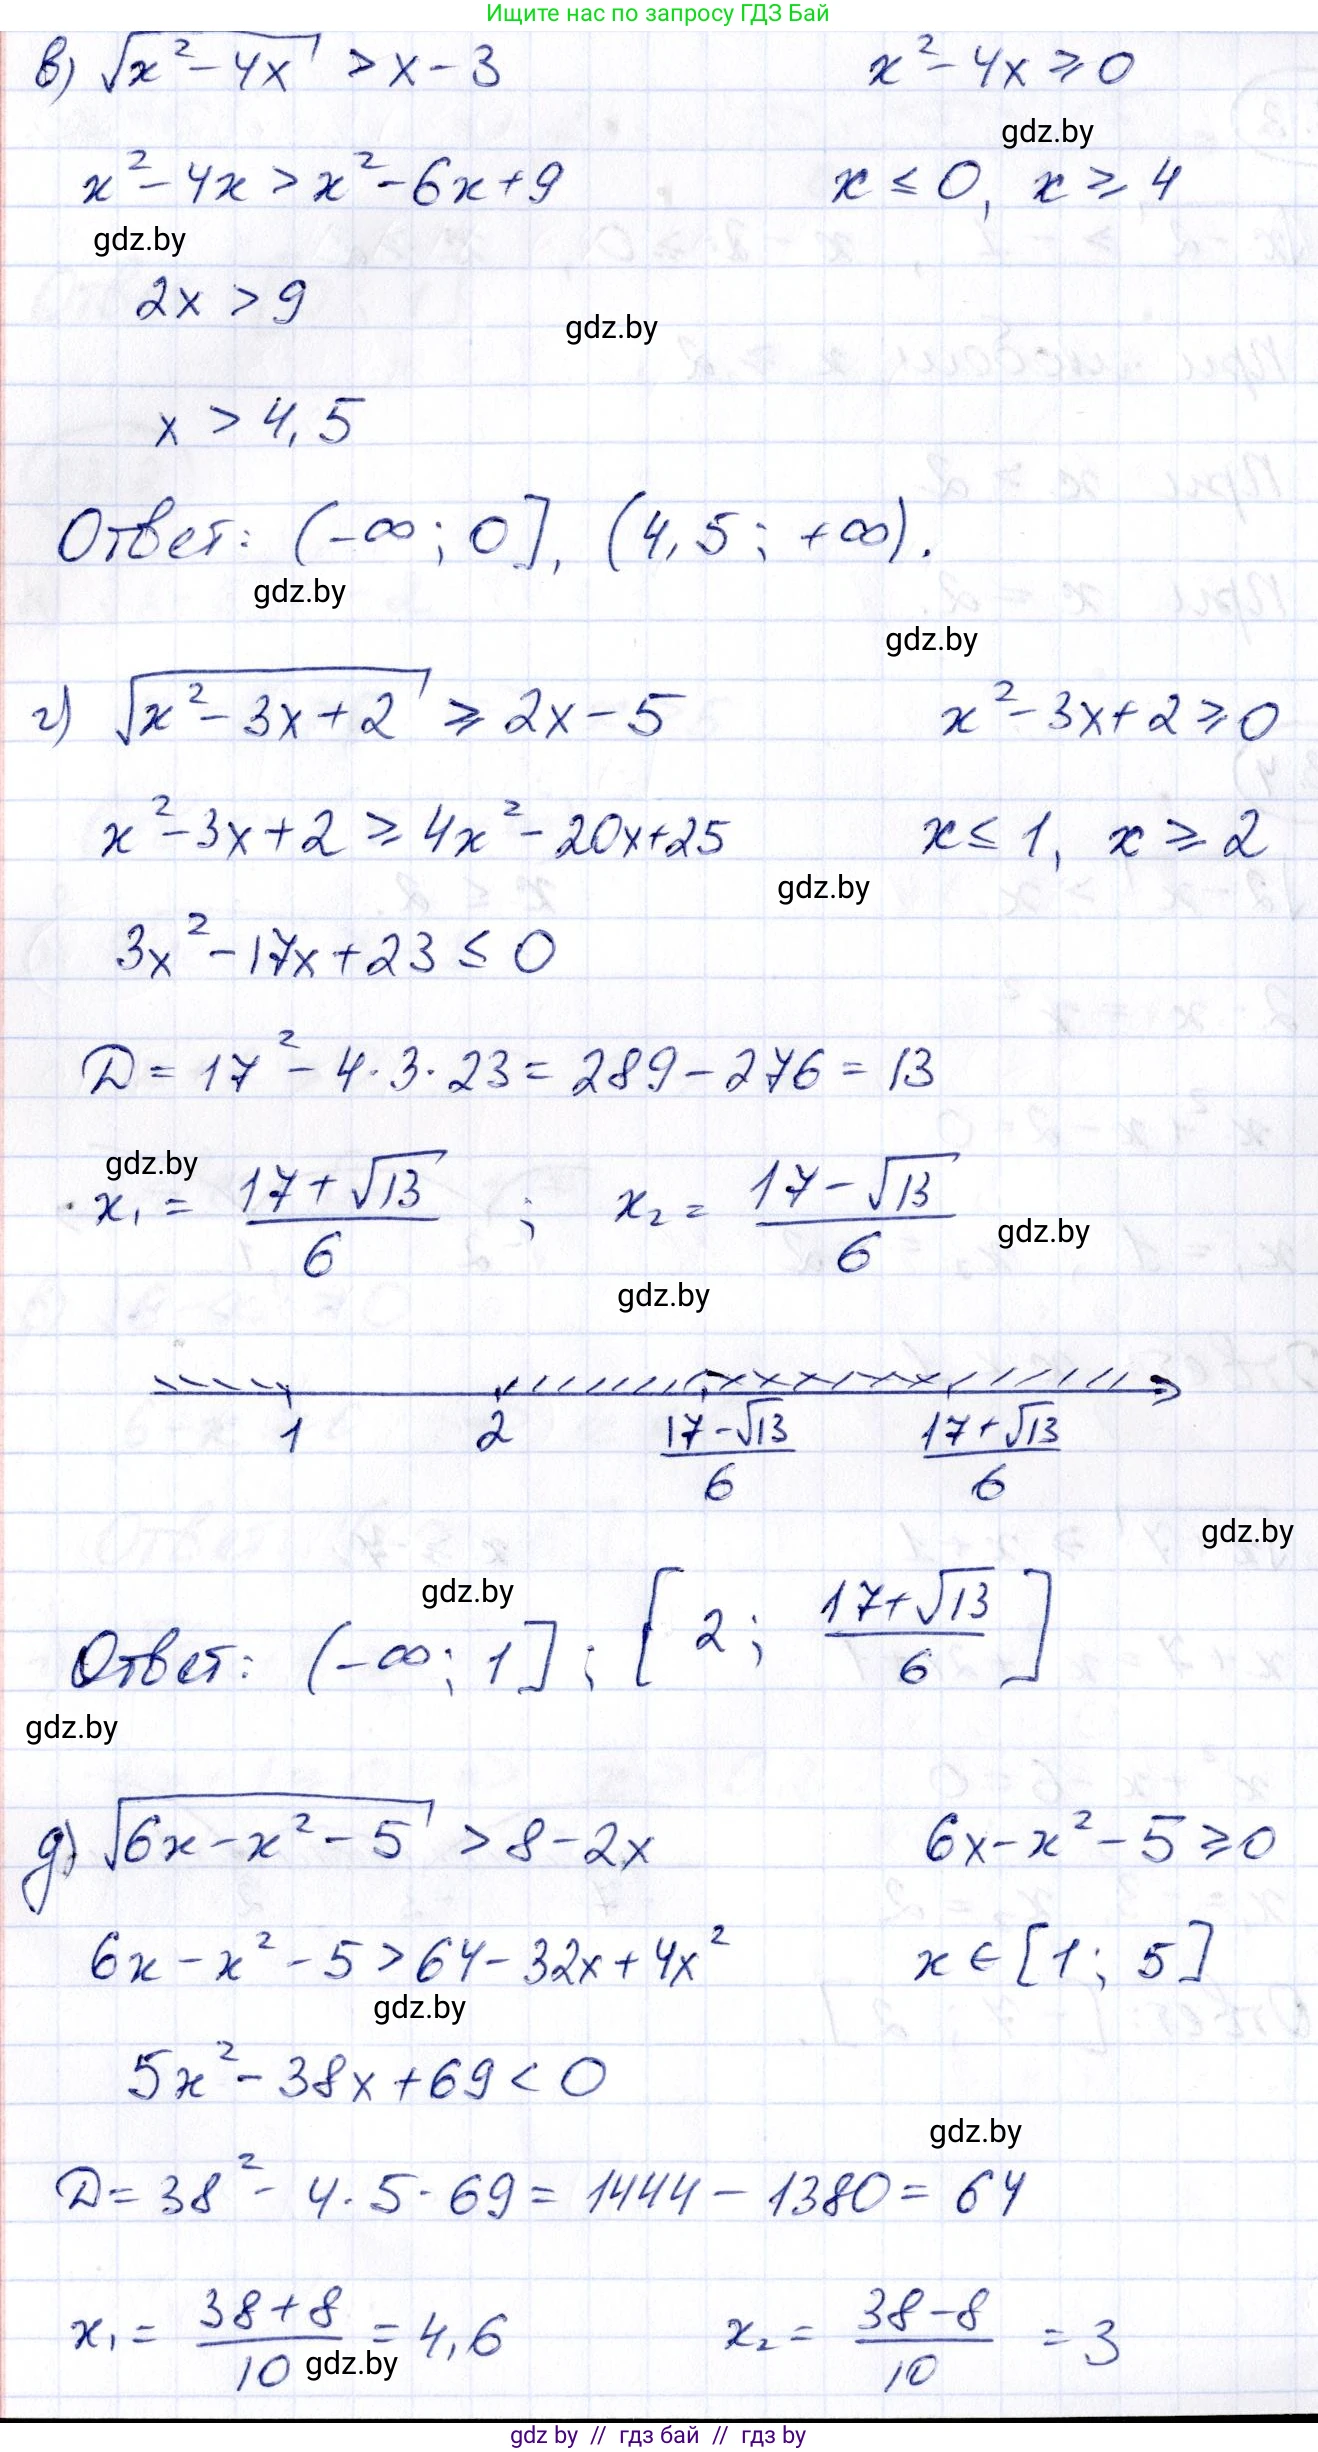 Ищите нас по запросу ГДЗ Бай
в) √(x² - 4x) > x - 3    x² - 4x ≥ 0
gdz.by
x² - 4x > x² - 6x + 9    x ≤ 0, x ≥ 4
gdz.by
2x > 9
gdz.by
x > 4,5
Ответ: (-∞; 0], (4,5; +∞).
gdz.by
gdz.by
г) √(x² - 3x + 2) ≥ 2x - 5    x² - 3x + 2 ≥ 0
x² - 3x + 2 ≥ 4x² - 20x + 25    x ≤ 1, x ≥ 2
gdz.by
3x² - 17x + 23 ≤ 0
D = 17² - 4·3·23 = 289 - 276 = 13
gdz.by
x₁ = (17 + √13)/6 ; x₂ = (17 - √13)/6
gdz.by
gdz.by
1    2    (17 - √13)/6    (17 + √13)/6
gdz.by
gdz.by
Ответ: (-∞; 1]; [2; (17 + √13)/6]
gdz.by
д) √(6x - x² - 5) > 8 - 2x    6x - x² - 5 ≥ 0
6x - x² - 5 > 64 - 32x + 4x²    x ∈ [1; 5]
gdz.by
5x² - 38x + 69 < 0
gdz.by
D = 38² - 4·5·69 = 1444 - 1380 = 64
x₁ = (38 + 8)/10 = 4,6    x₂ = (38 - 8)/10 = 3
gdz.by
gdz by // гдз бай // gdz by